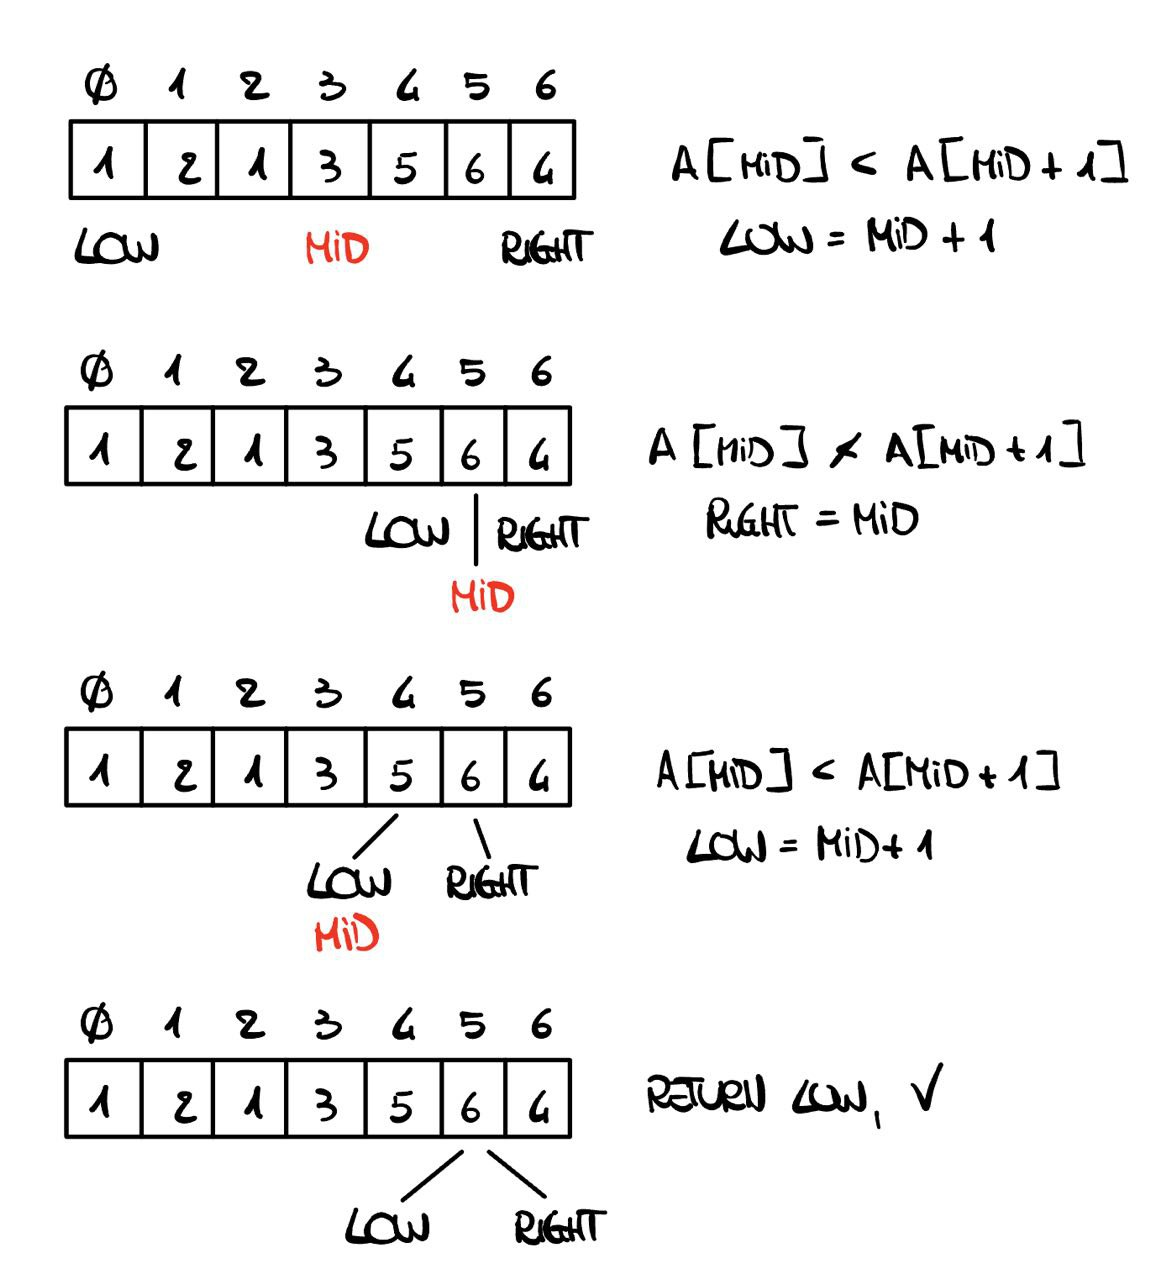 Ø 1 2 3 4 5 6
1 2 1 3 5 6 4
LOW MiD RIGHT
A[MiD] < A[MiD + 1]
LOW = MiD + 1
Ø 1 2 3 4 5 6
1 2 1 3 5 6 4
LOW RIGHT
MiD
A[MiD] ≮ A[MiD + 1]
RIGHT = MiD
Ø 1 2 3 4 5 6
1 2 1 3 5 6 4
LOW RIGHT
MiD
A[MiD] < A[MiD + 1]
LOW = MiD + 1
Ø 1 2 3 4 5 6
1 2 1 3 5 6 4
LOW RIGHT
RETURN LOW, ✓